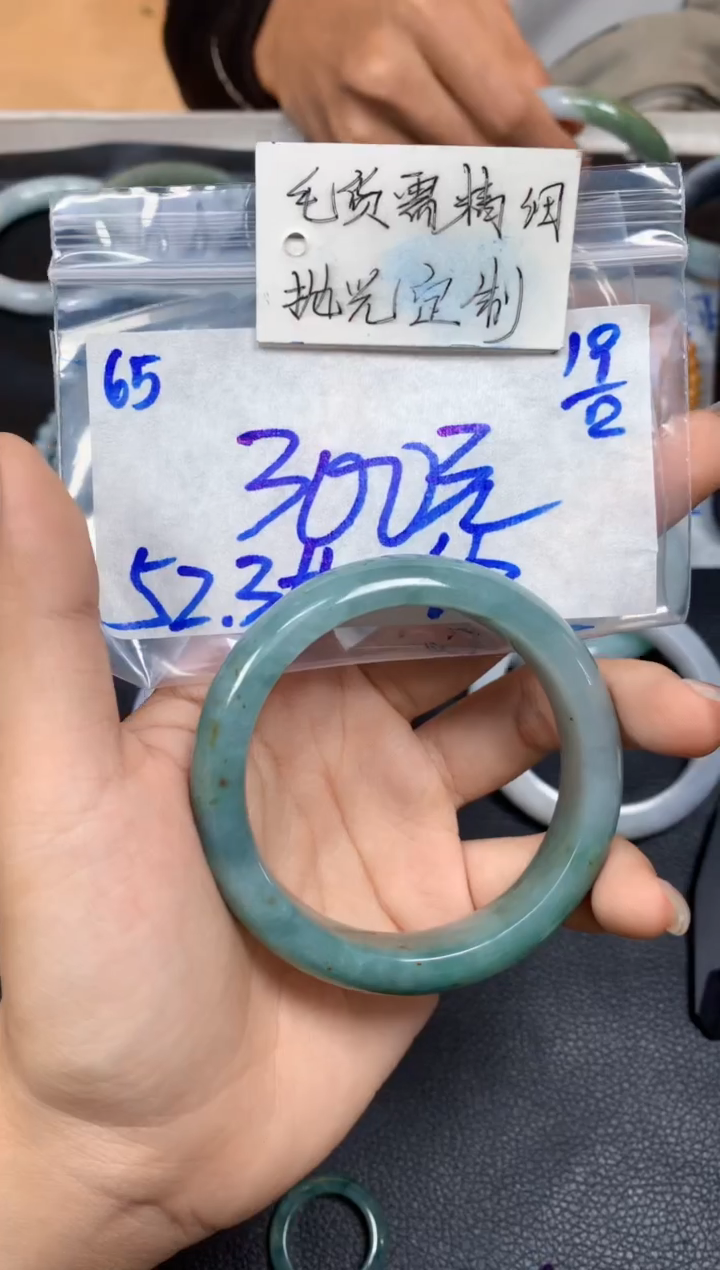 毛货需精细
抛光定制
65
19
300元
52.3